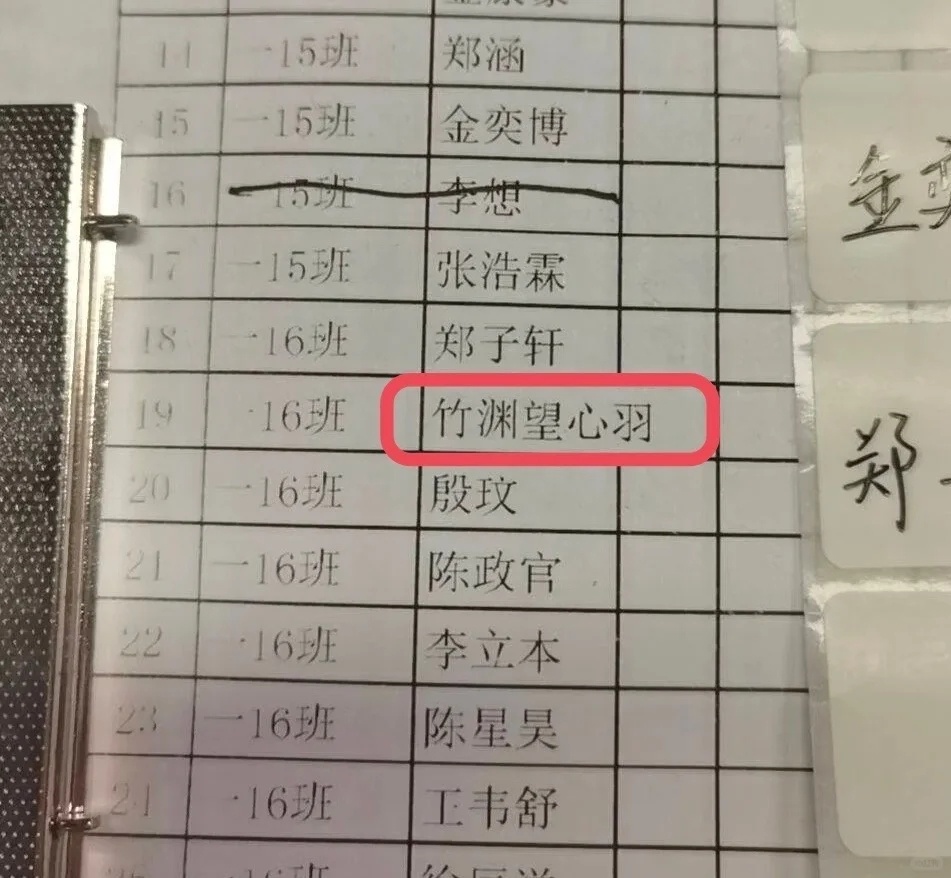 14 一15班 郑涵
15 一15班 金奕博
16 一15班 李想
17 一15班 张浩霖
18 一16班 郑子轩
19 一16班 竹渊望心羽
20 一16班 殷玟
21 一16班 陈政官
22 一16班 李立本
23 一16班 陈星昊
24 一16班 王韦舒
金奕
郑